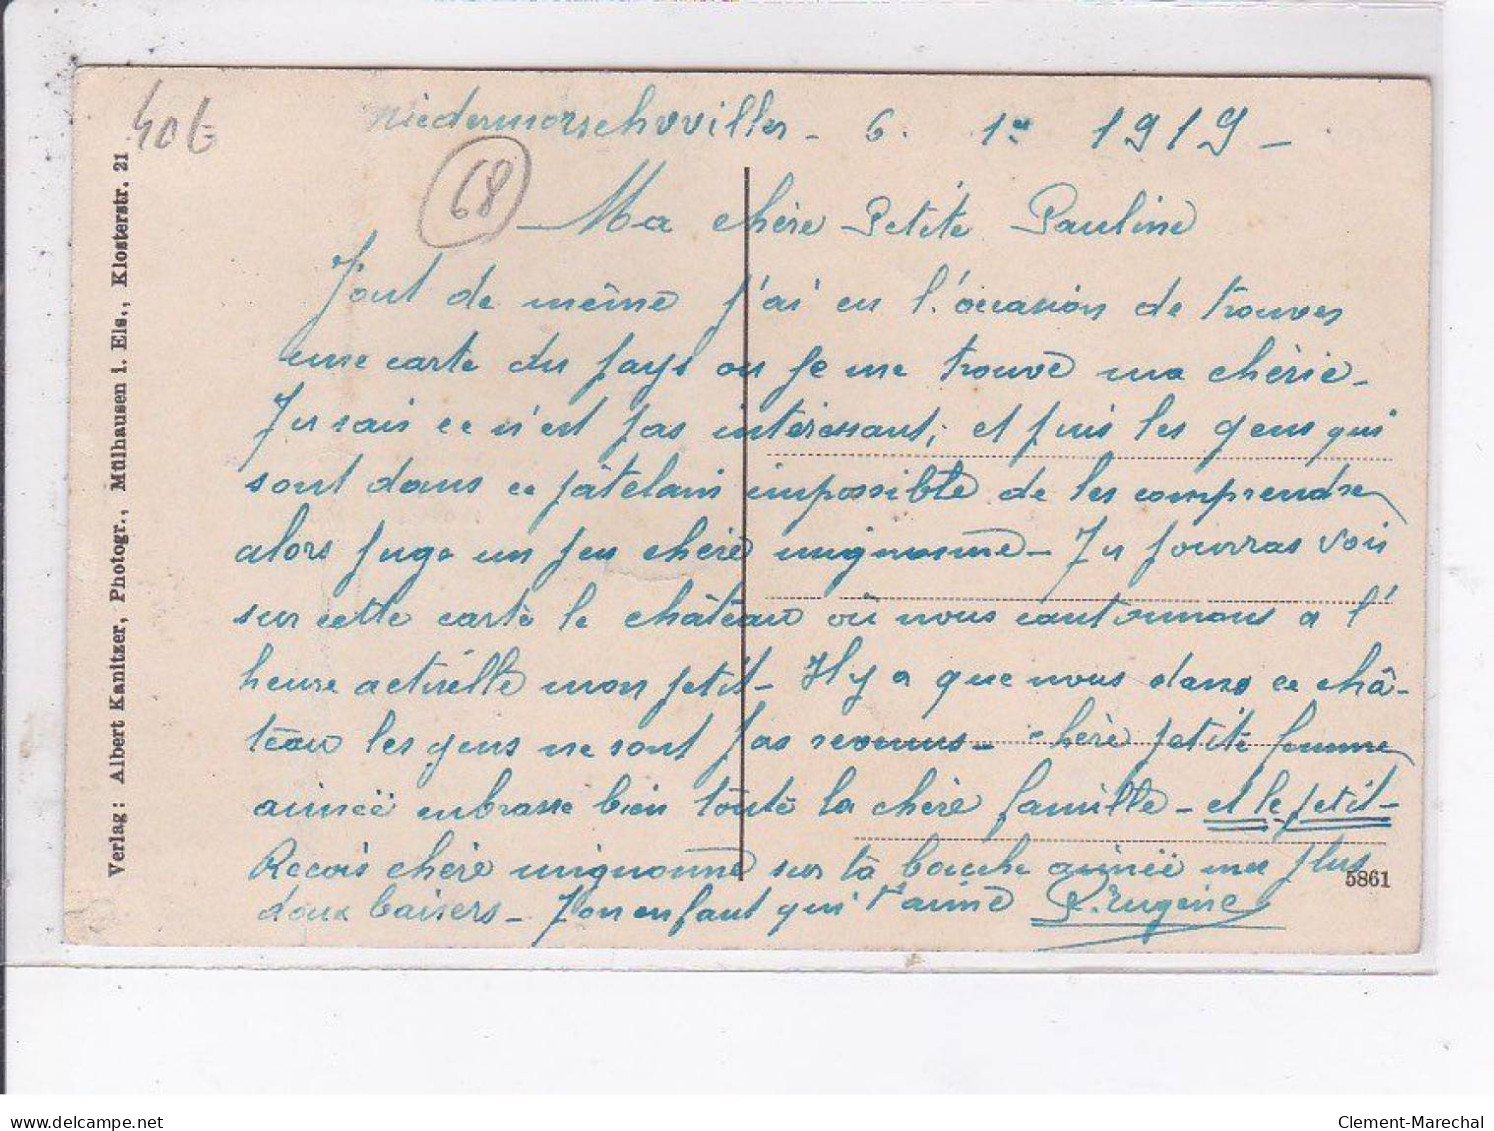 40€
68
Verlag: Albert Kanitzer, Photogr., Mülhausen i. Els., Klosterstr. 21
niedermorschvviller - 6. 1er 1919 -
Ma chère Petite Pauline
Tout de même j'ai eu l'occasion de trouver
une carte du pays ou je me trouve ma chérie -
Tu sais ce n'est pas intéressant, et puis les gens qui
sont dans ce patelain impossible de les comprendre
alors juge un peu chère mignonne - Tu pourras voir
sur cette carte le château où nous cantonnons a l'
heure actuelle mon petit - Il y a que nous dans ce châ-
teau les gens ne sont pas revenus - chère petite femme
aimée enbrasse bien toute la chère famille - et le petit -
Recois chère mignonne sur ta bouche aimée mes plus
doux baisers - Ton enfant qui t'aime P. Eugène
5861
delcampe.net
Clement-Marechal